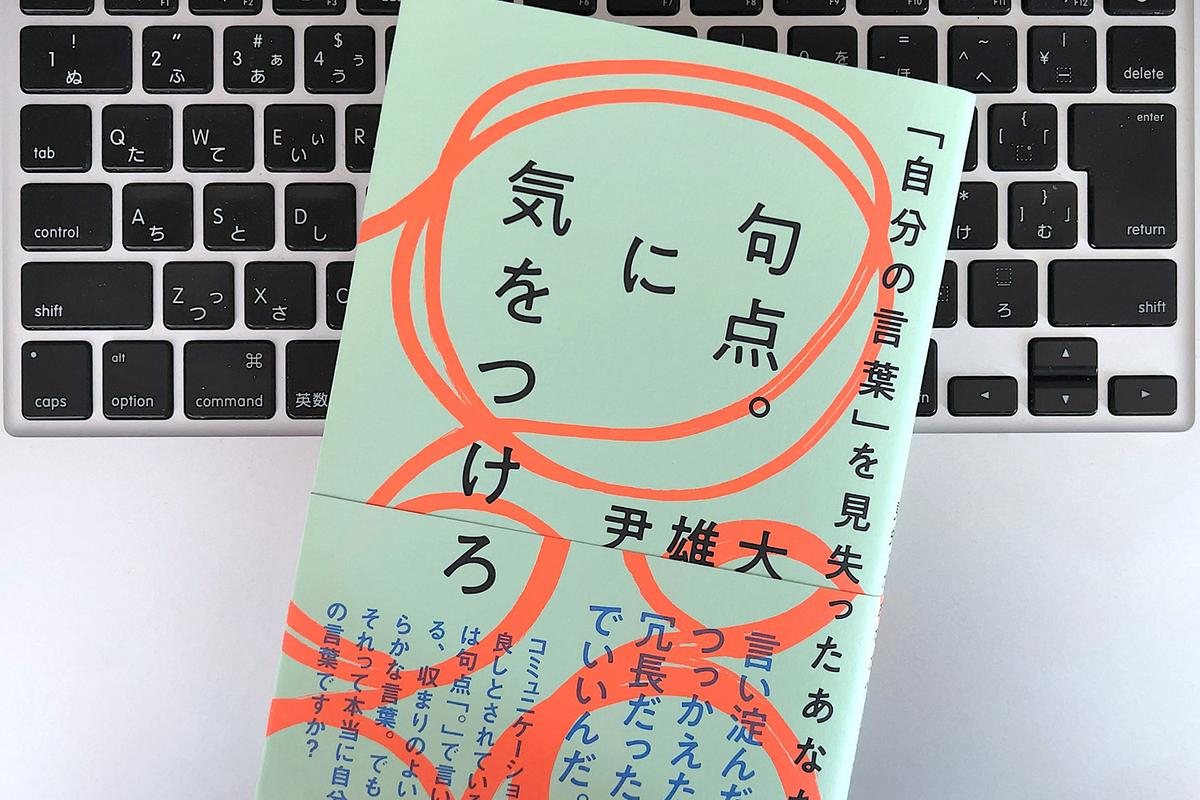 句点。
に
気をつけろ
「自分の言葉」を見失ったあな
尹雄大
言い淀んだ
つっかえた
冗長だった
でいいんだ。
コミュニケーショ
良しとされている
は句点「。」で言い
る、収まりのよい
らかな言葉。でも
それって本当に自分
の言葉ですか?
! 1 ぬ
" 2 ふ
# 3 ぁ あ
$ 4 ぅ う
= - ほ
~ ^ へ
| ¥ ー
delete
tab
Q た
W て
E ぃ い
R
{ [ 「 ゜
enter
return
control
A ち
S と
D し
* け
} ] 」 む
shift
Z っ つ
X さ
C
ろ
shift
caps
alt option
⌘ command
英数
fn